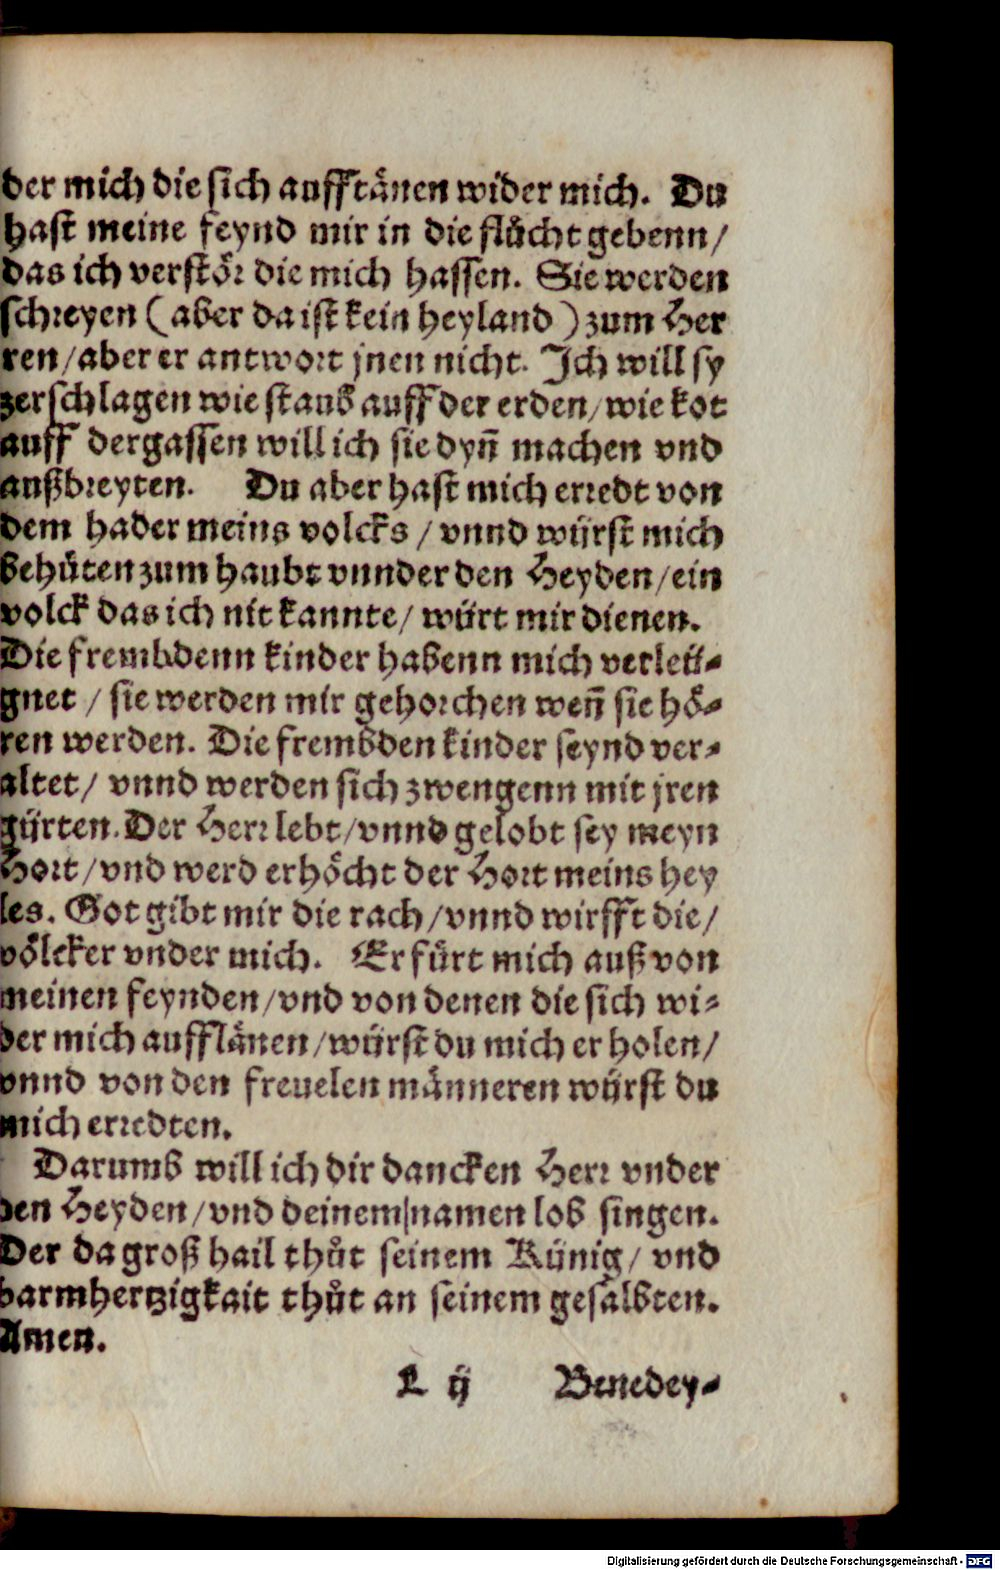 der mich die sich aufftånen wider mich. Du
hast meine feynd mir in die flůcht gebenn/
das ich verstör die mich hassen. Sie werden
schreyen (aber da ist kein heyland) zum Her
ren/aber er antwort jnen nicht. Jch will sy
zerschlagen wie staub auff der erden/wie kot
auff der gassen will ich sie dyñ machen vnd
außbreyten. Du aber hast mich erredt von
dem hader meins volcks/vnnd würst mich
behüten zum haubt vnnder den Heyden/ein
volck das ich nit kannte/ würt mir dienen.
Die frembdenn kinder habenn mich verleü-
gnet / sie werden mir gehorchen weñ sie hö-
ren werden. Die frembden kinder seynd ver-
altet/ vnnd werden sich zwengenn mit jren
gürten. Der Herr lebt/vnnd gelobt sey meyn
Hort/vnd werd erhöcht der Hort meins hey
les. Got gibt mir die rach/vnnd wirfft die/
völcker vnder mich. Er fürt mich auß von
meinen feynden/vnd von denen die sich wi-
der mich aufflänen/würst du mich er holen/
vnnd von den freuelen männeren würst du
mich erredten.
Darumb will ich dir dancken Herr vnder
den Heyden/vnd deinem namen lob singen.
Der da groß hail thůt seinem Künig/ vnd
barmhertzigkait thůt an seinem gesalbten.
Amen.
L ij Benedey-
Digitalisierung gefördert durch die Deutsche Forschungsgemeinschaft - DFG